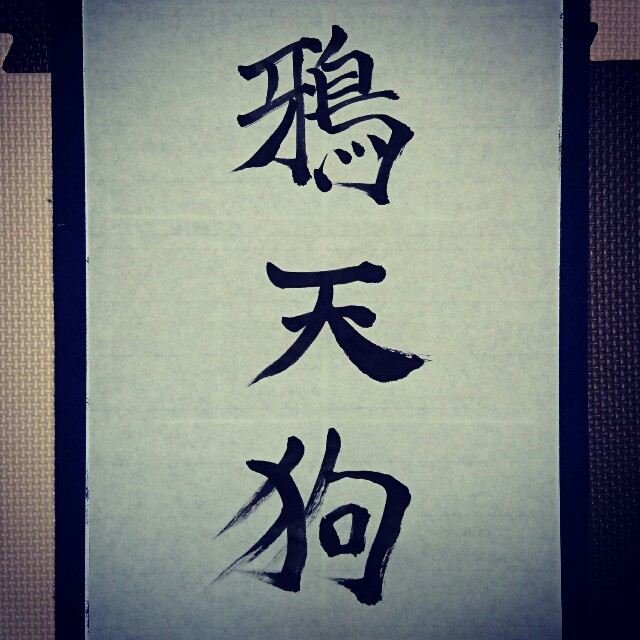 鴉天狗